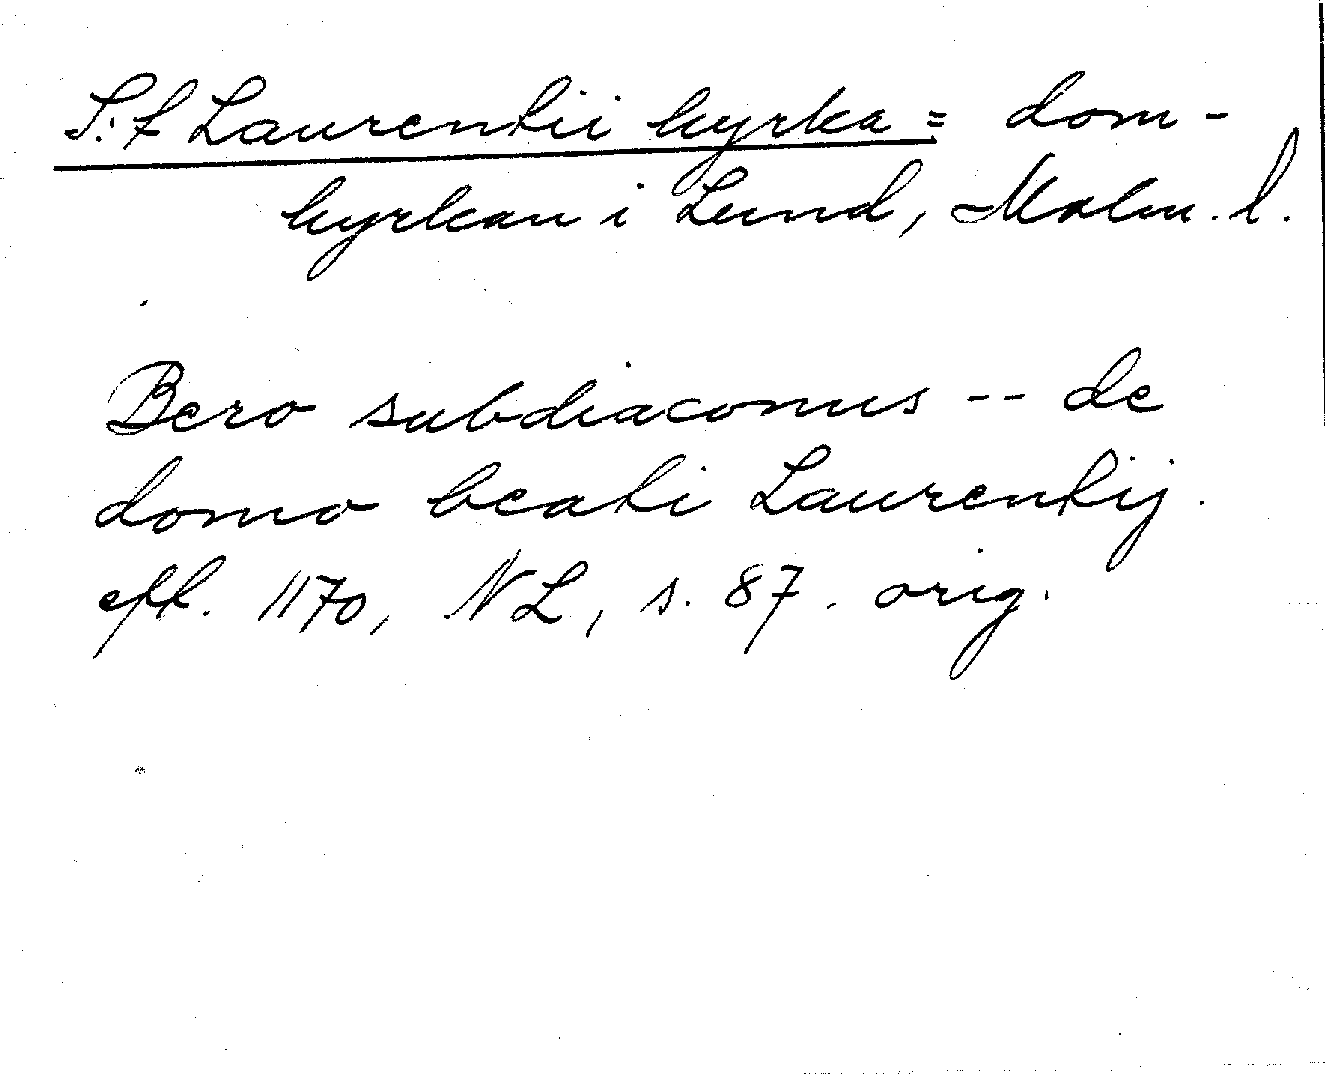 S:t Laurentii kyrka = dom-
kyrkan i Lund, Malm. l.
Bero subdiaconus -- de
domo beati Laurentij.
eft. 1170, NL, s. 87. orig.